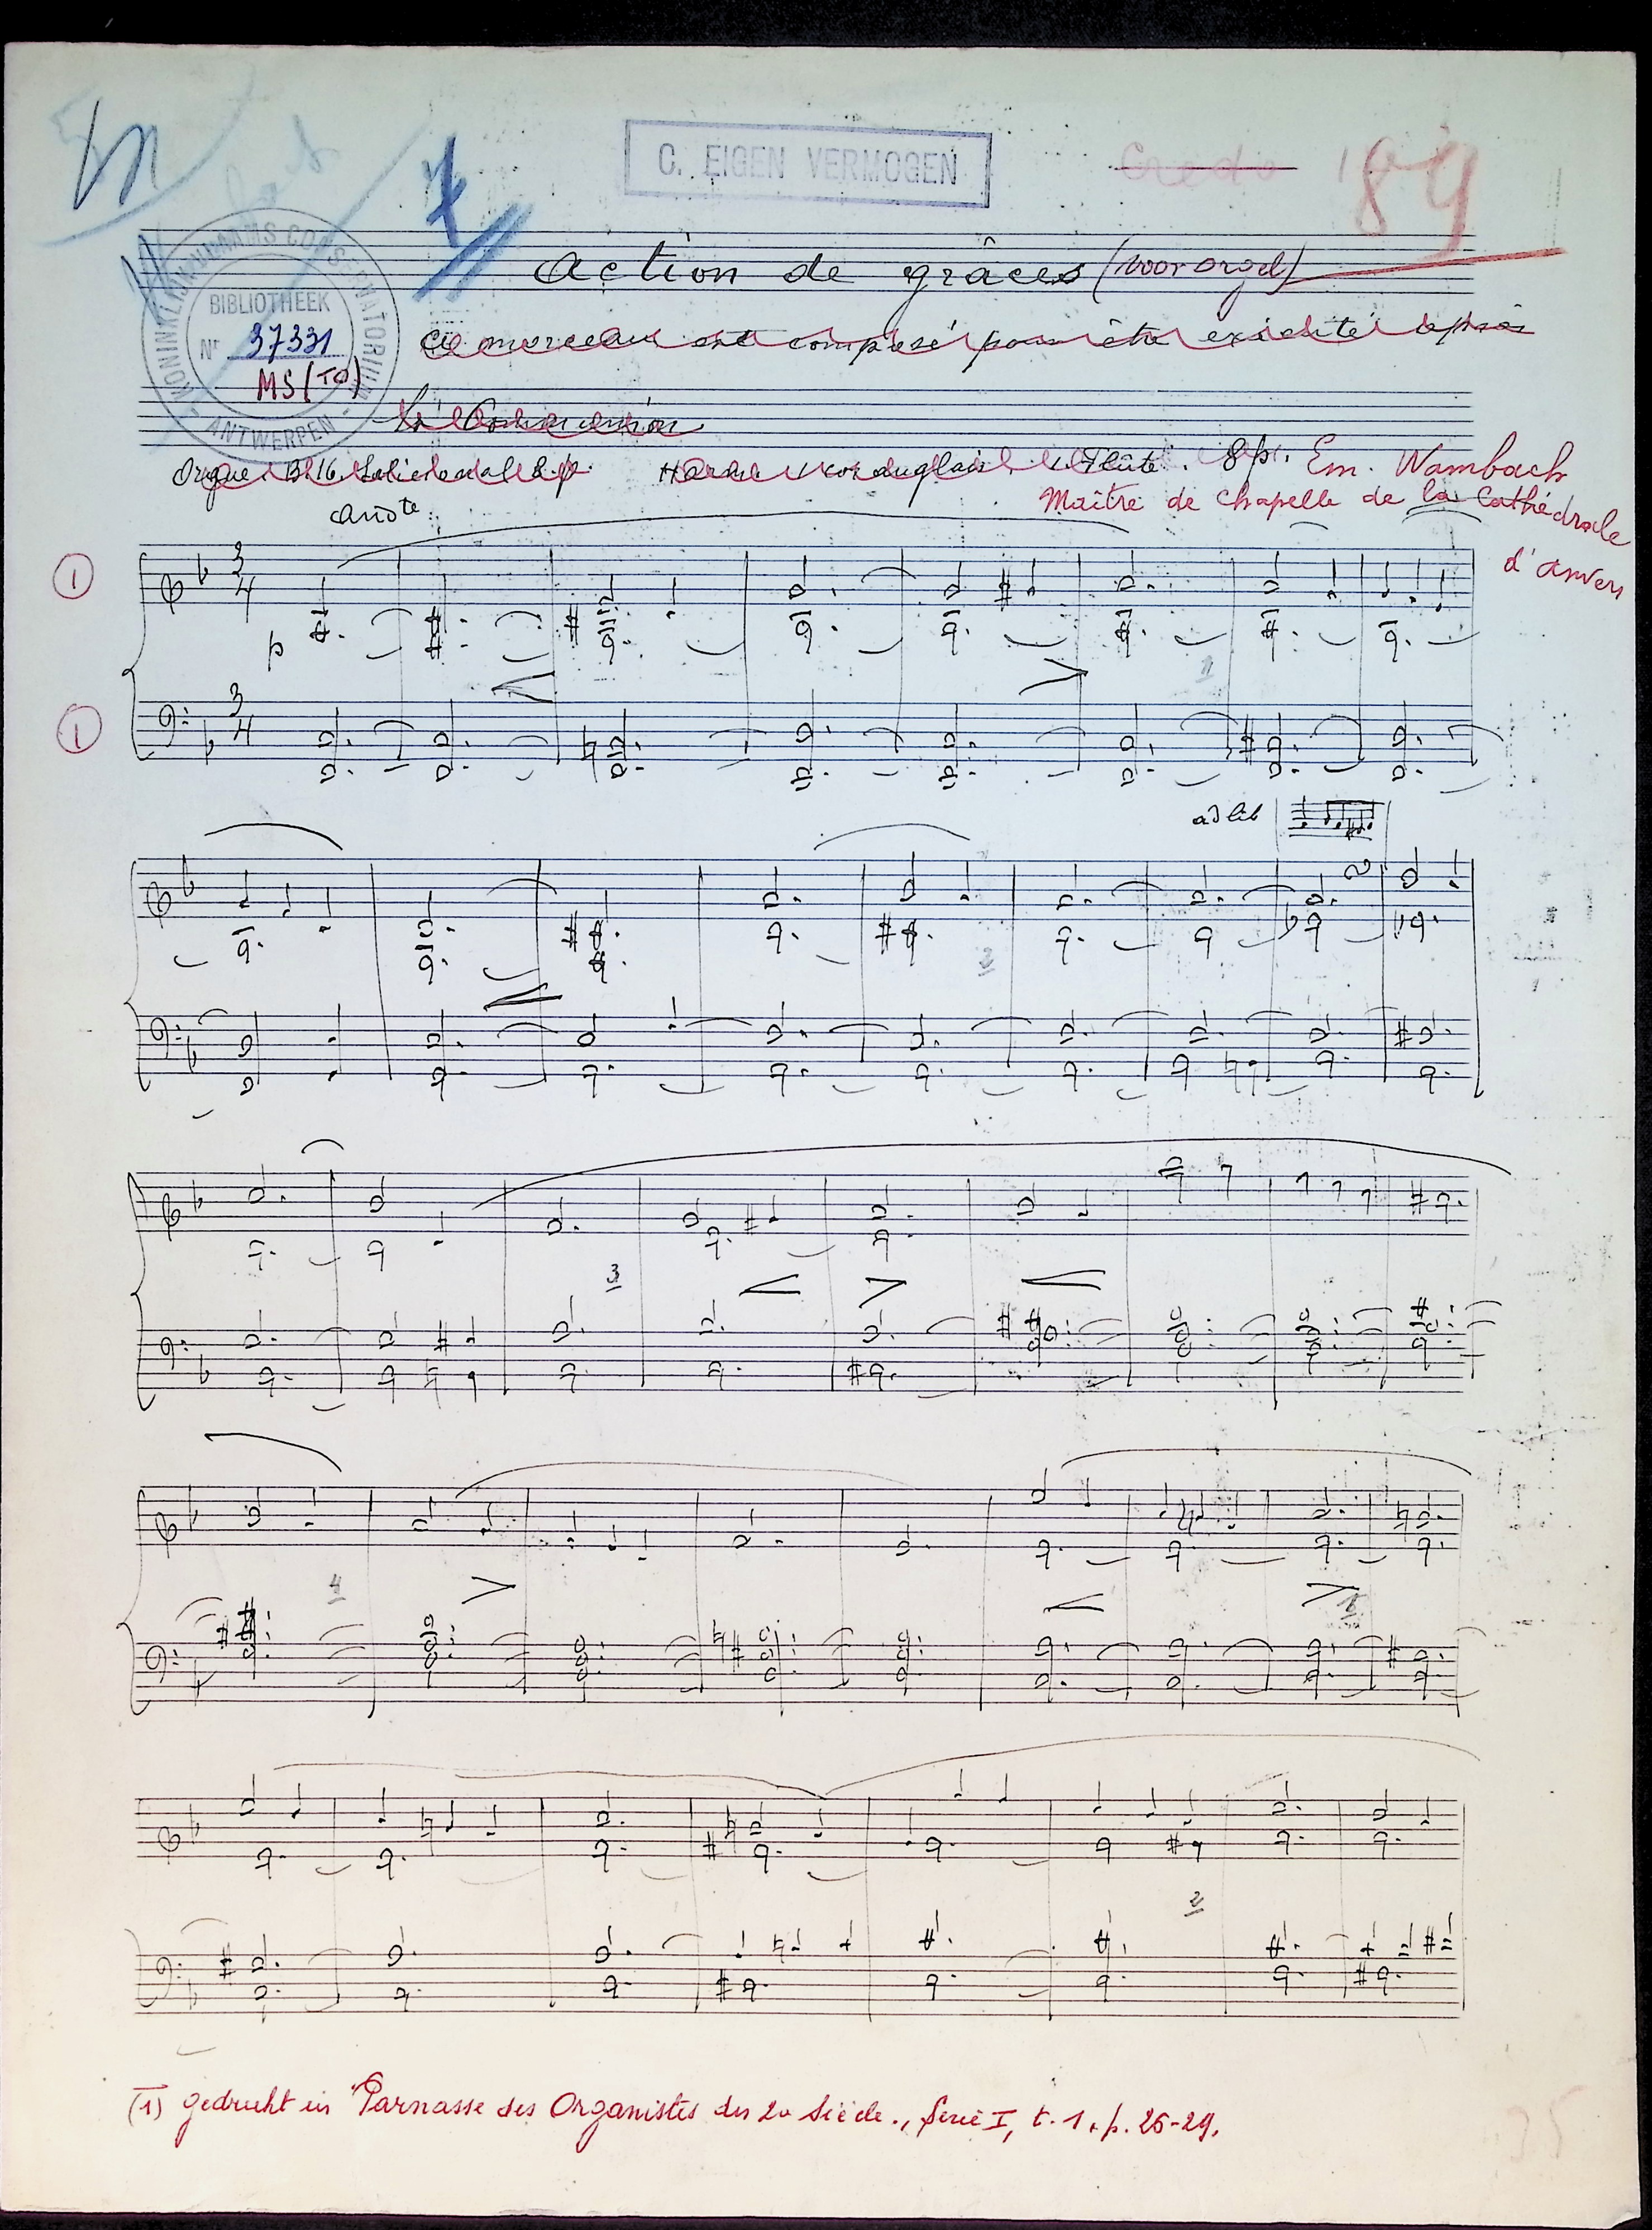 C. EIGEN VERMOGEN
Credo 189
7
KONINKLIJK VLAAMS CONSERVATORIUM
BIBLIOTHEEK
Nr 37331
MS (TO)
- ANTWERPEN -
Action de grâces (voor orgel)
Ce morceau est composé pour être exécuté après
la Communion
Orgue: B. 16. 8 p. Harm. cor anglais Flûte. 8 p. Em. Wambach
Maître de Chapelle de la Cathédrale
d'Anvers
Andte
1
3
4
p
1
1
3
4
ad lib
2
3
4
5
2
(1) gedrukt in "Parnasse des Organistes du 20 Siècle., Serie I, t. 1. p. 26-29.
35